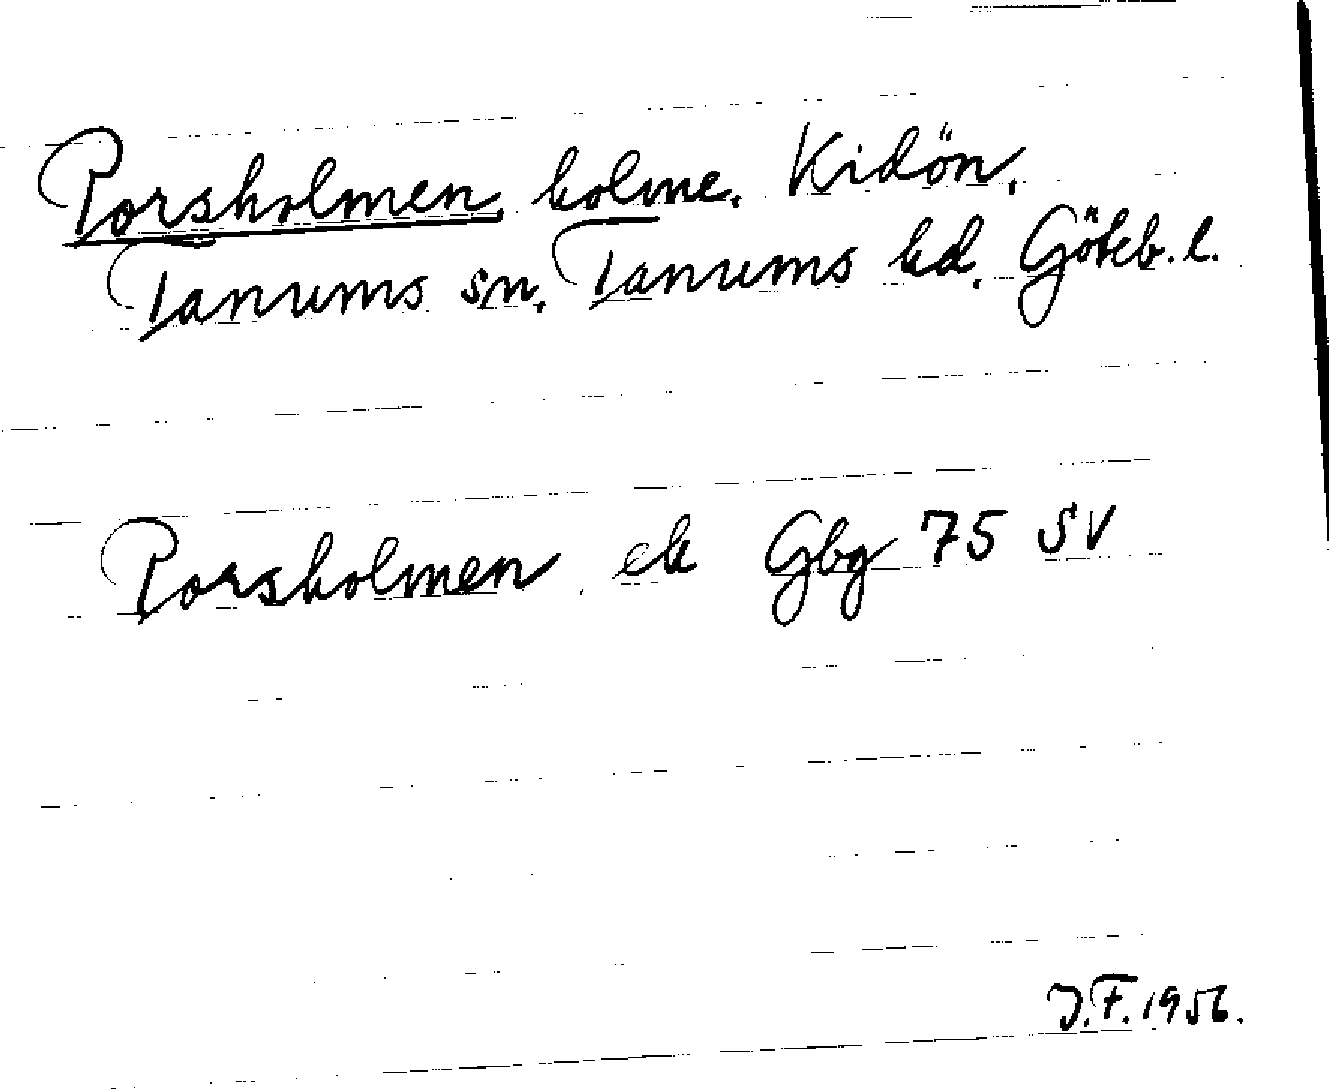 Porsholmen, holme. Kidön.
Tanums sn. Tanums hd. Göteb. l.
Porsholmen ek Gbg 75 SV
J.F. 1956.